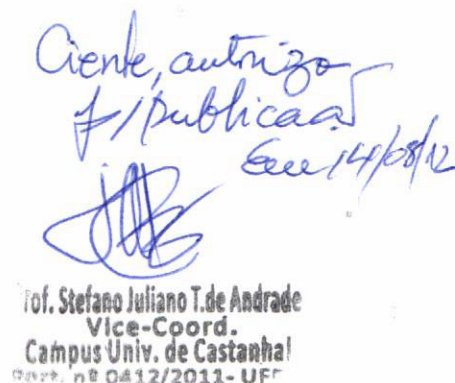 Ciente, autorizo
p/ publicação
Em 14/08/12
rof. Stefano Juliano T. de Andrade
Vice-Coord.
Campus Univ. de Castanhal
Port. nº 0412/2011- UF